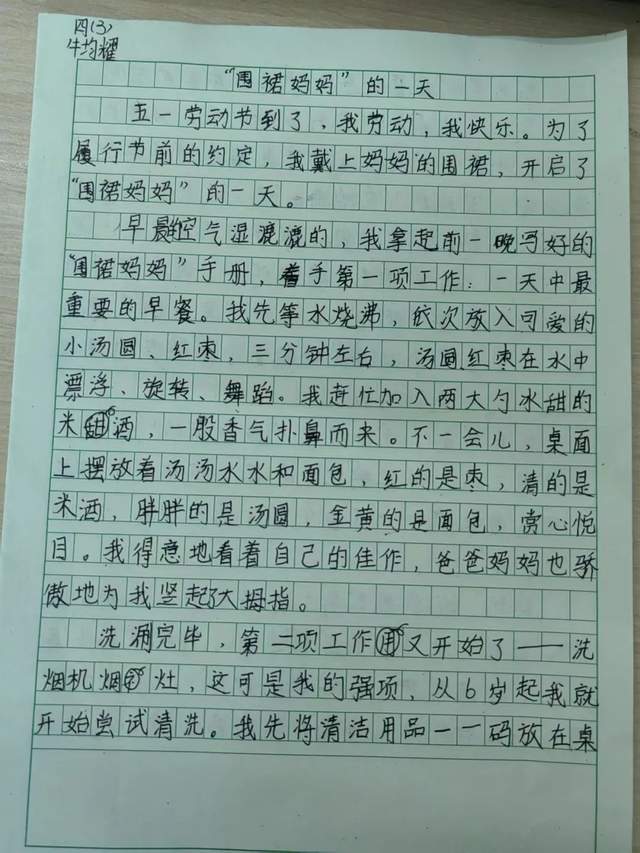 四(3)
牛均耀
“围裙妈妈”的一天
五一劳动节到了，我劳动，我快乐。为了
履行节前的约定，我戴上妈妈的围裙，开启了
“围裙妈妈”的一天。
早晨空气湿漉漉的，我拿起前一晚写好的
“围裙妈妈”手册，着手第一项工作：一天中最
重要的早餐。我先等水烧沸，依次放入可爱的
小汤圆、红枣，三分钟左右，汤圆红枣在水中
漂浮、旋转、舞蹈。我赶忙加入两大勺冰甜的
米酒，一股香气扑鼻而来。不一会儿，桌面
上摆放着汤汤水水和面包，红的是枣，清的是
米酒，胖胖的是汤圆，金黄的是面包，赏心悦
目。我得意地看着自己的佳作，爸爸妈妈也骄
傲地为我竖起了大拇指。
洗涮完毕，第二项工作又开始了——洗
烟机烟灶，这可是我的强项，从6岁起我就
开始尝试清洗。我先将清洁用品一一码放在桌